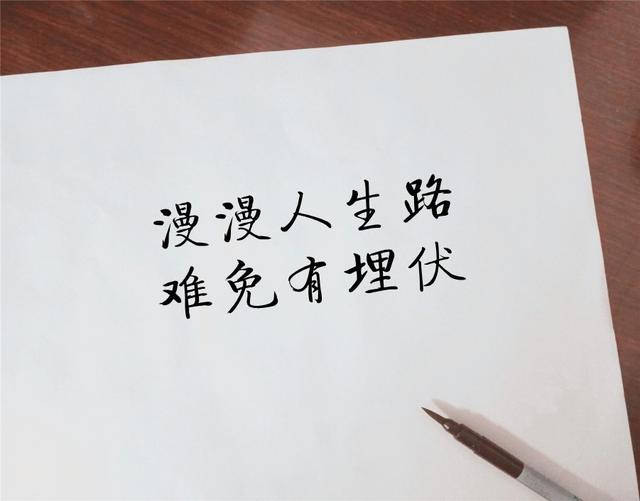 漫漫人生路
难免有埋伏